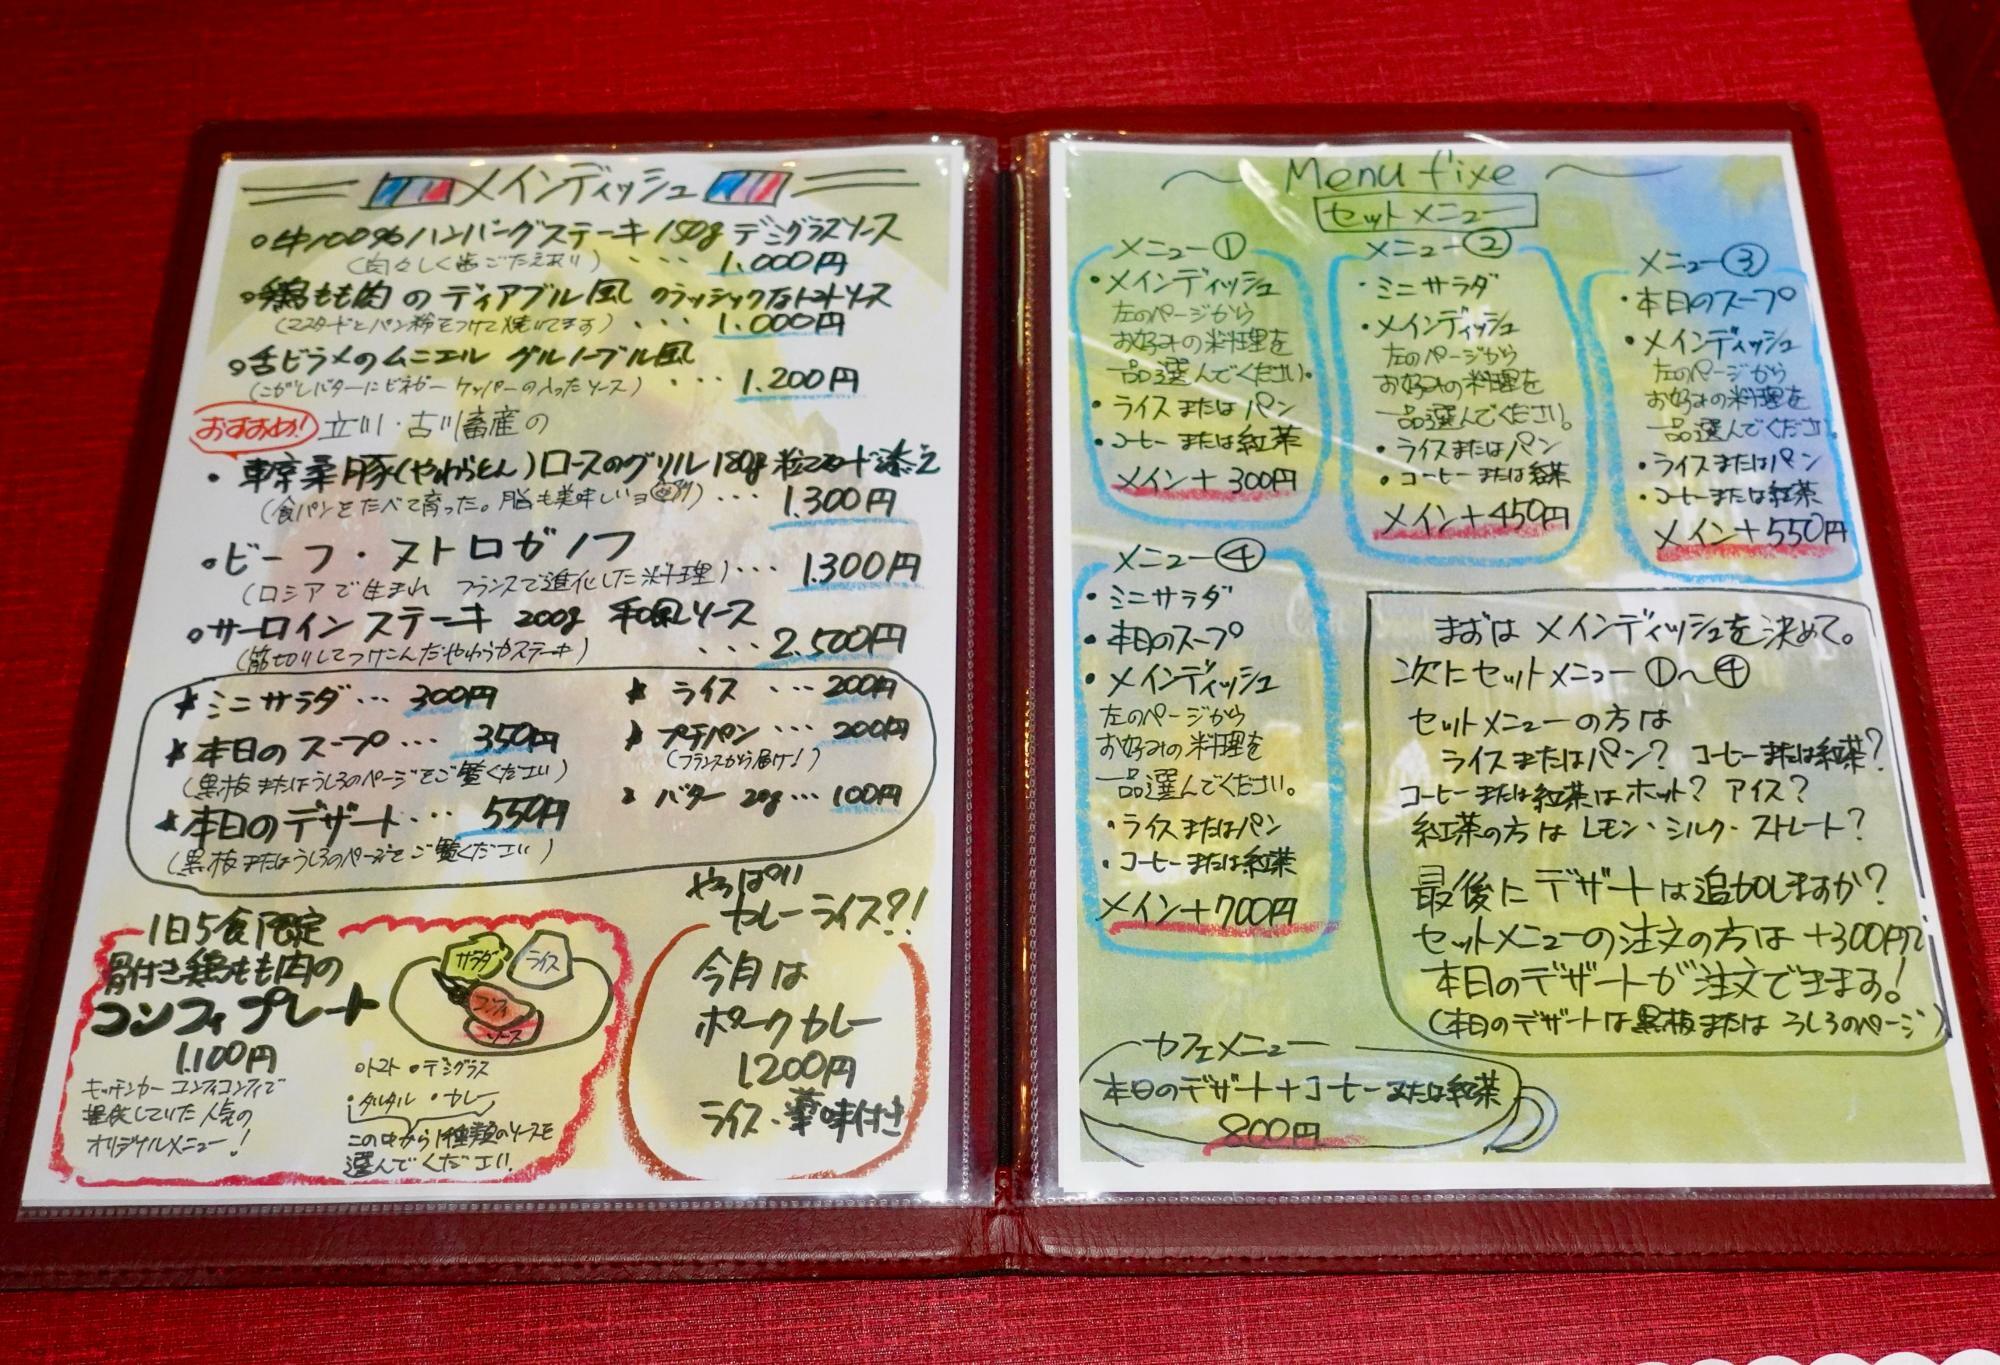 メインディッシュ
○牛100%ハンバーグステーキ150g デミグラスソース
(肉々しく歯ごたえあり) ・・・ 1.000円
○鶏もも肉のディアブル風 クラッシックなトマトソース
(マスタードとパン粉をつけて焼いてます) ・・・ 1.000円
○舌ビラメのムニエル グルノーブル風
(こがしバターにビネガー ケッパーの入ったソース) ・・・ 1.200円
おすすめ! 立川・古川畜産の
・東京柔豚(やわらとん)ロースのグリル180g 粒マスタード添え
(食パンをたべて育った。脂も美味しいョ) ・・・ 1.300円
○ビーフ・ストロガノフ
(ロシアで生まれ フランスで進化した料理)・・・ 1.300円
○サーロインステーキ 200g 和風ソース
(筋切りしてつけこんだやわらかステーキ) ・・・ 2.500円
★ミニサラダ・・・ 300円
★本日のスープ・・・ 350円
(黒板またはうしろのページをご覧ください)
★本日のデザート・・・ 550円
(黒板またはうしろのページをご覧ください)
★ ライス ・・・ 200円
★ プチパン・・・ 200円
(フランスから届け!)
バター 20g・・・100円
1日5食限定
骨付き鶏もも肉の
コンフィプレート
1.100円
キッチンカー コンフィコンフィで
提供していた人気の
オリジナルメニュー!
サラダ
ライス
コンフィ
ソース
○トマト ○デミグラス
・タルタル ・カレー
この中から1種類のソースを
選んでください。
やっぱり
カレーライス?!
今月は
ポークカレー
1200円
ライス・薬味付き
Menu fixe
セットメニュー
メニュー①
・メインディッシュ
左のページから
お好みの料理を
一品選んでください。
・ライスまたはパン
・コーヒーまたは紅茶
メイン+300円
メニュー②
・ミニサラダ
・メインディッシュ
左のページから
お好みの料理を
一品選んでください。
・ライスまたはパン
・コーヒーまたは紅茶
メイン+450円
メニュー③
・本日のスープ
・メインディッシュ
左のページから
お好みの料理を
一品選んでください。
・ライスまたはパン
・コーヒーまたは紅茶
メイン+550円
メニュー④
・ミニサラダ
・本日のスープ
・メインディッシュ
左のページから
お好みの料理を
一品選んでください。
・ライスまたはパン
・コーヒーまたは紅茶
メイン+700円
まずは メインディッシュを決めて。
次にセットメニュー①〜④
セットメニューの方は
ライスまたはパン? コーヒーまたは紅茶?
コーヒーまたは紅茶はホット? アイス?
紅茶の方は レモン・ミルク・ストレート?
最後にデザートは追加しますか?
セットメニューの注文の方は+300円で
本日のデザートが注文できます!
(本日のデザートは黒板または うしろのページ)
カフェメニュー
本日のデザート+コーヒーまたは紅茶
800円